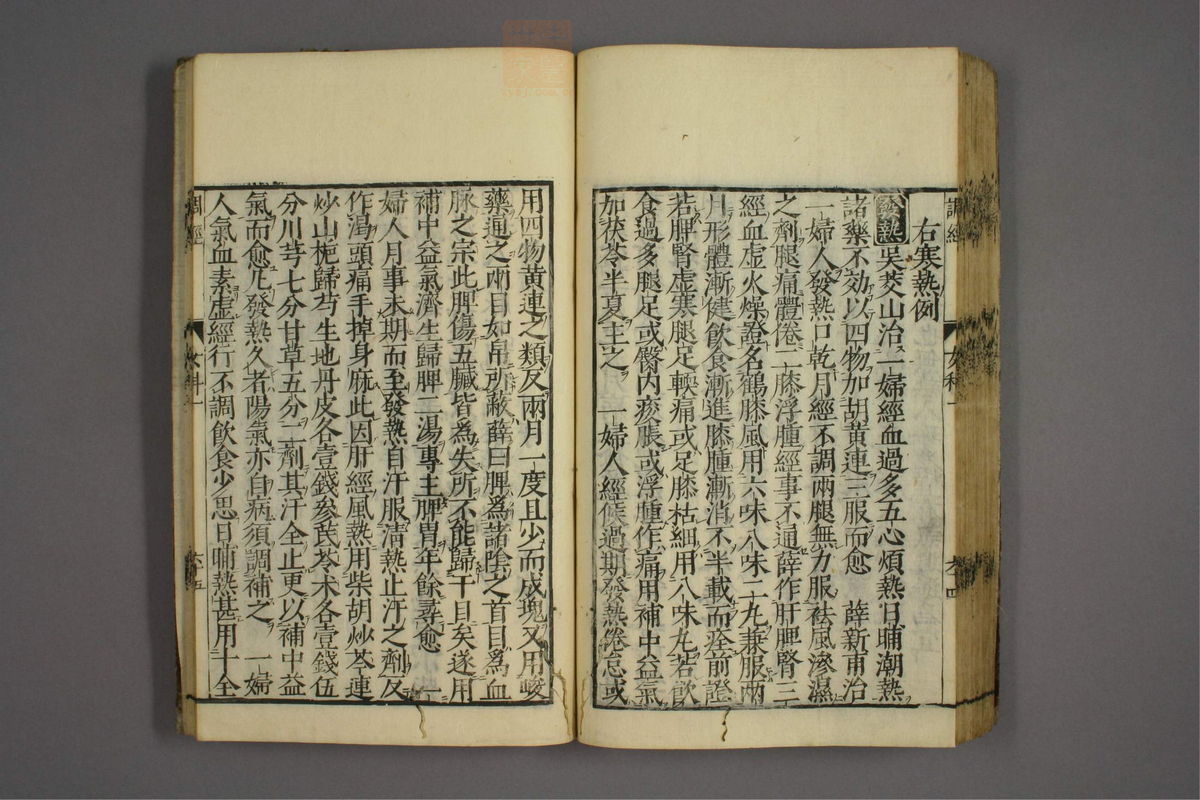 右寒熱例
發熱 吳茭山治一婦經血過多五心煩熱日晡潮熱
諸藥不効以四物加胡黃連三服而愈 薛新甫治
一婦人發熱口乾月經不調兩腿無力服祛風滲濕
之劑腿痛體倦二膝浮腫經事不通薛作肝脾腎三
經血虛火燥證名鶴膝風用六味八味二丸兼服兩
月形體漸健飲食漸進膝腫漸消不半載而痊前證
若脾腎虛寒腿足軟痛或足膝枯細用八味丸若飲
食過多腿足或臀內痠脹或浮腫作痛用補中益氣
加茯苓半夏主之 一婦人經候過期發熱倦怠或
用四物黃連之類反兩月一度且少而成塊又用峻
藥通之兩目如帛所蔽薛曰脾爲諸陰之首目爲血
脉之宗此脾傷五臟皆爲失所不能歸于目矣遂用
補中益氣濟生歸脾二湯專主脾胃年餘尋愈 一
婦人月事未期而至發熱自汗服清熱止汗之劑反
作渴頭痛手掉身麻此因肝經風熱用柴胡炒芩連
炒山梔歸芍生地丹皮各壹錢參芪苓术各壹錢伍
分川芎七分甘草五分二劑其汗全止更以補中益
氣而愈凡發熱久者陽氣亦自病須調補之 一婦
人氣血素虛經行不調飲食少思日晡熱甚用十全
調經
女科一
六十四
調經
女科一
六十五